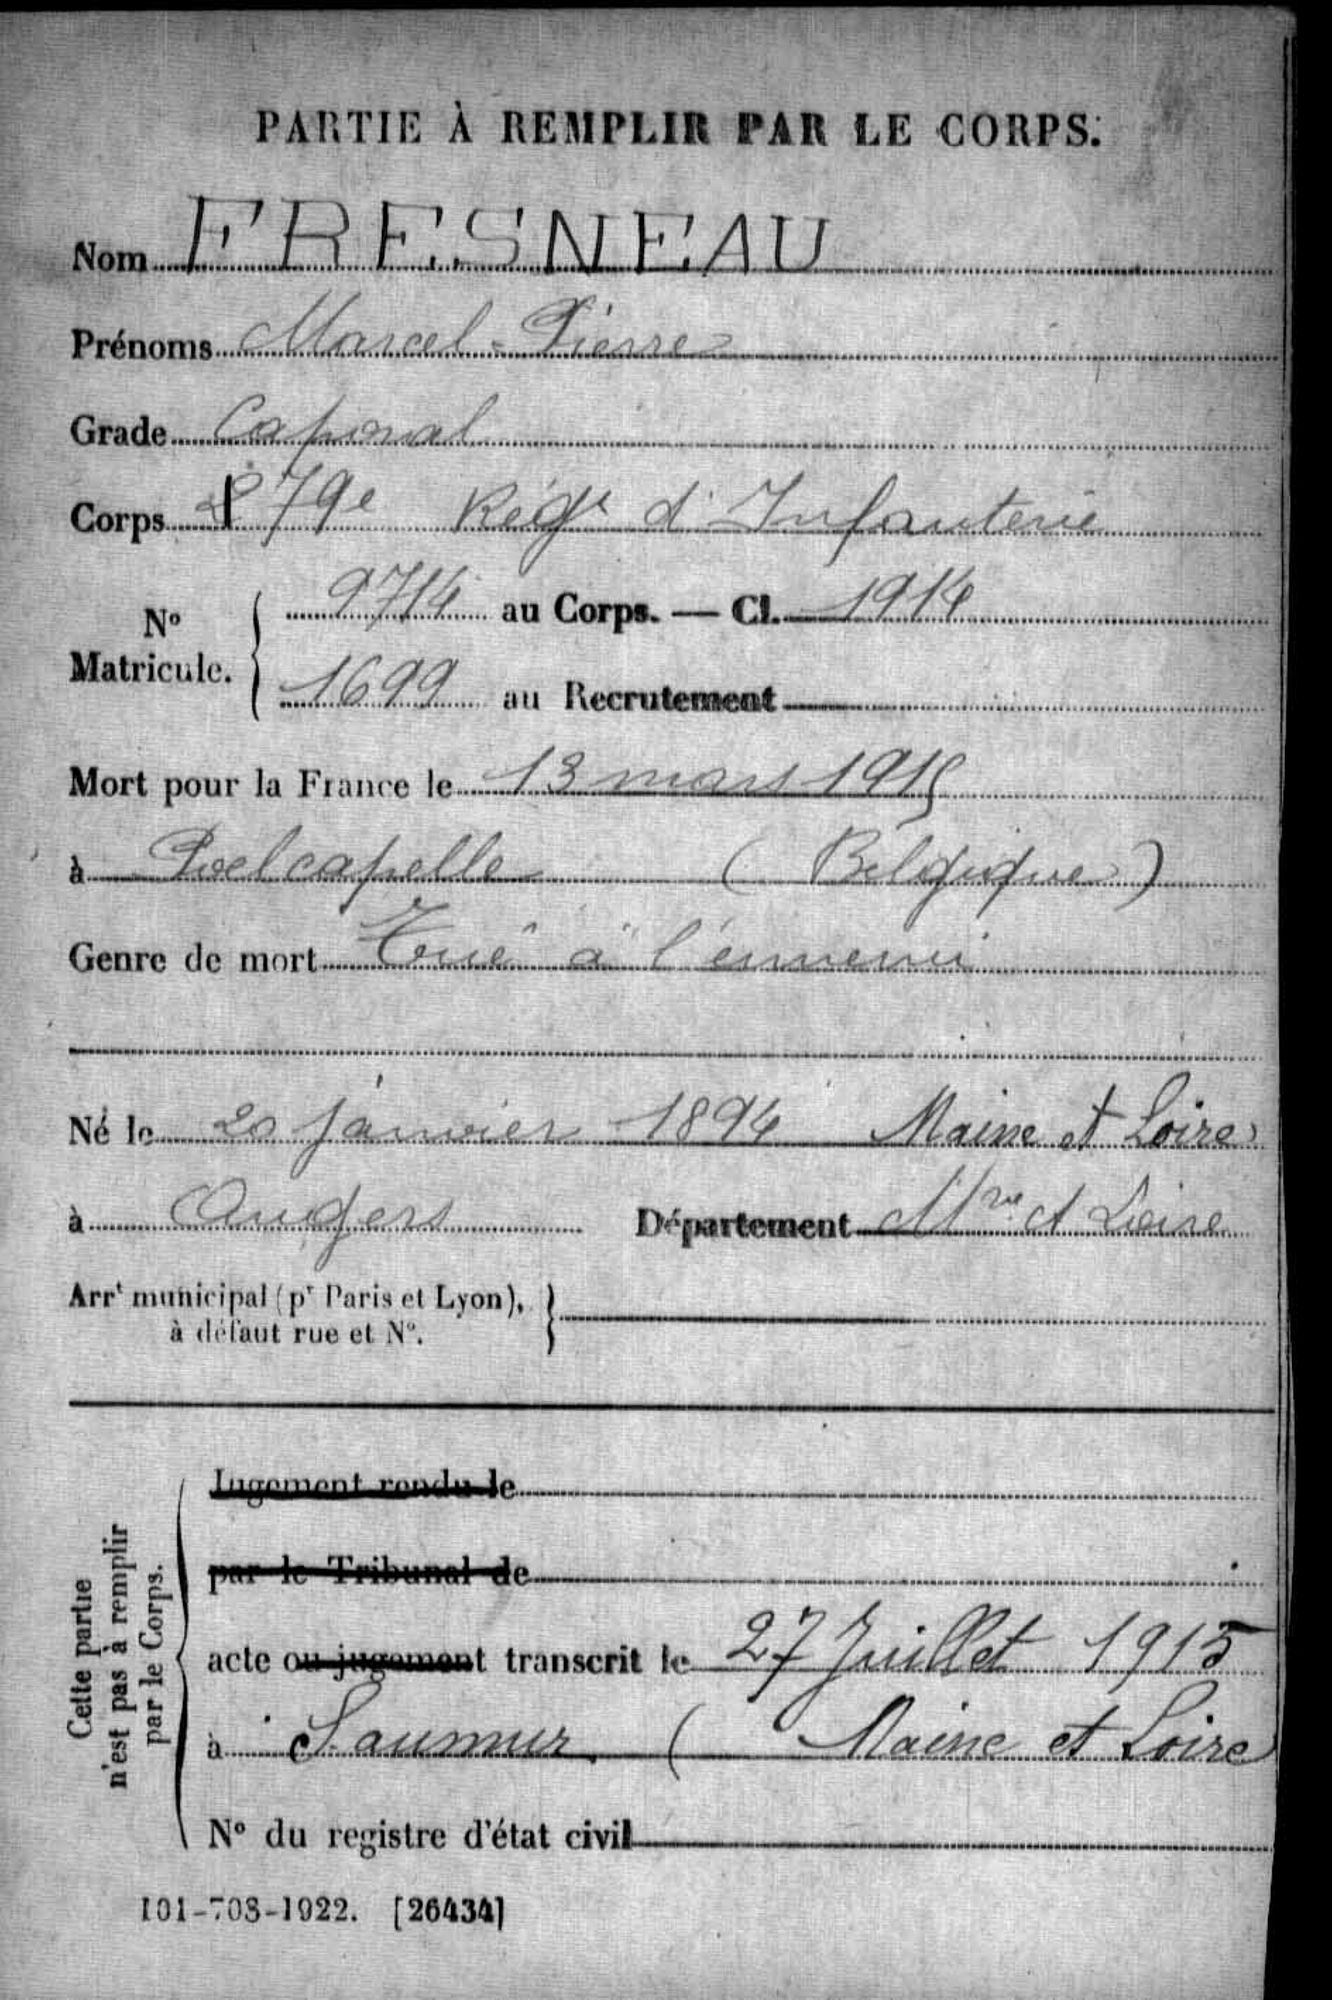 PARTIE À REMPLIR PAR LE CORPS.
Nom FRESNEAU
Prénoms Marcel-Pierre
Grade Caporal
Corps 79e Régt d'Infanterie
No Matricule. { 9714 au Corps. — Cl. 1914
1699 au Recrutement
Mort pour la France le 13 mars 1915
à Poelcapelle (Belgique)
Genre de mort Tué à l'ennemi
Né le 20 janvier 1894 Maine et Loire
à Angers Département Mne et Loire
Arrt municipal (pr Paris et Lyon), }
à défaut rue et No.
Cette partie
n'est pas à remplir
par le Corps.
Jugement rendu le
par le Tribunal de
acte ou jugement transcrit le 27 Juillet 1915
à Saumur (Maine et Loire
No du registre d'état civil
101-708-1922. [26434]